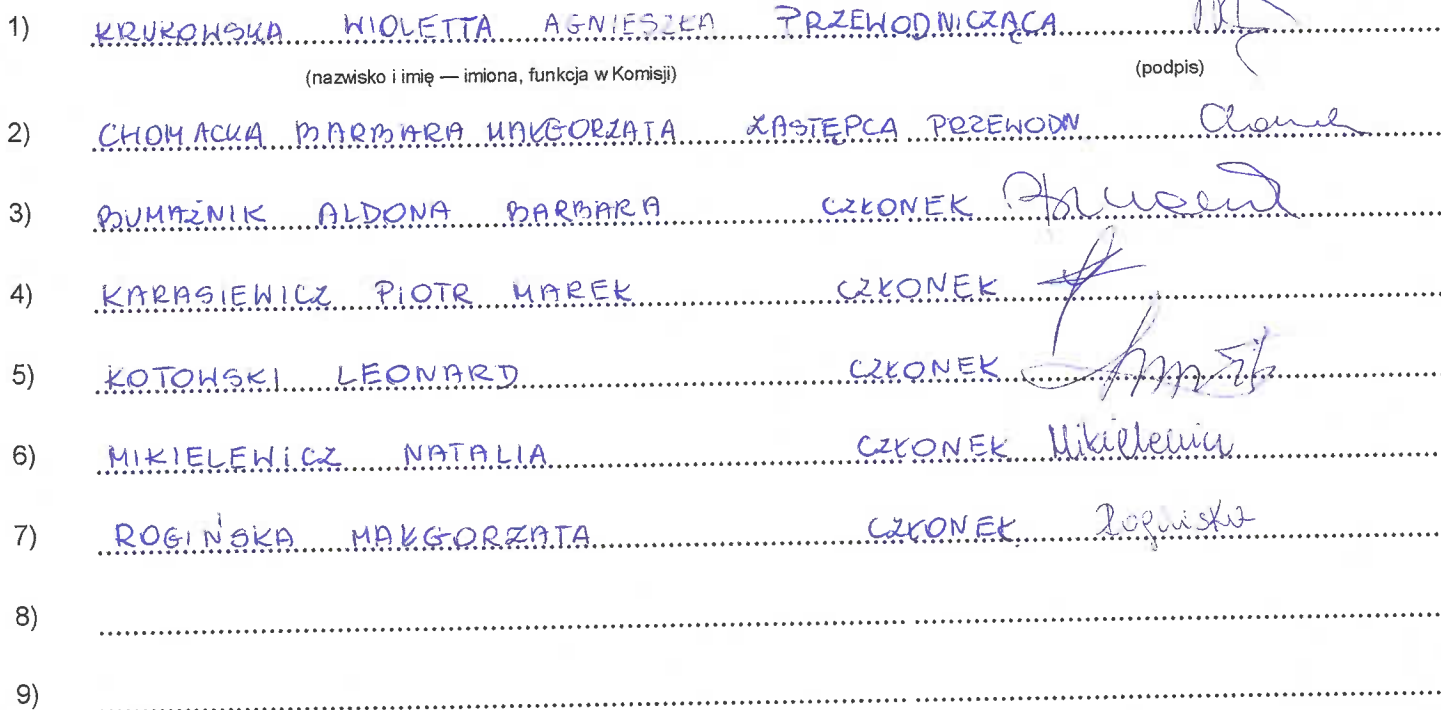 1) KRUKOWSKA WIOLETTA AGNIESZKA PRZEWODNICZĄCA
(nazwisko i imię — imiona, funkcja w Komisji) (podpis)
2) CHOMACKA BARBARA MAŁGORZATA ZASTĘPCA PRZEWODN
3) BUMAŻNIK ALDONA BARBARA CZŁONEK
4) KARASIEWICZ PIOTR MAREK CZŁONEK
5) KOTOWSKI LEONARD CZŁONEK
6) MIKIELEWICZ NATALIA CZŁONEK Mikielewicz
7) ROGIŃSKA MAŁGORZATA CZŁONEK Rogińska
8)
9)